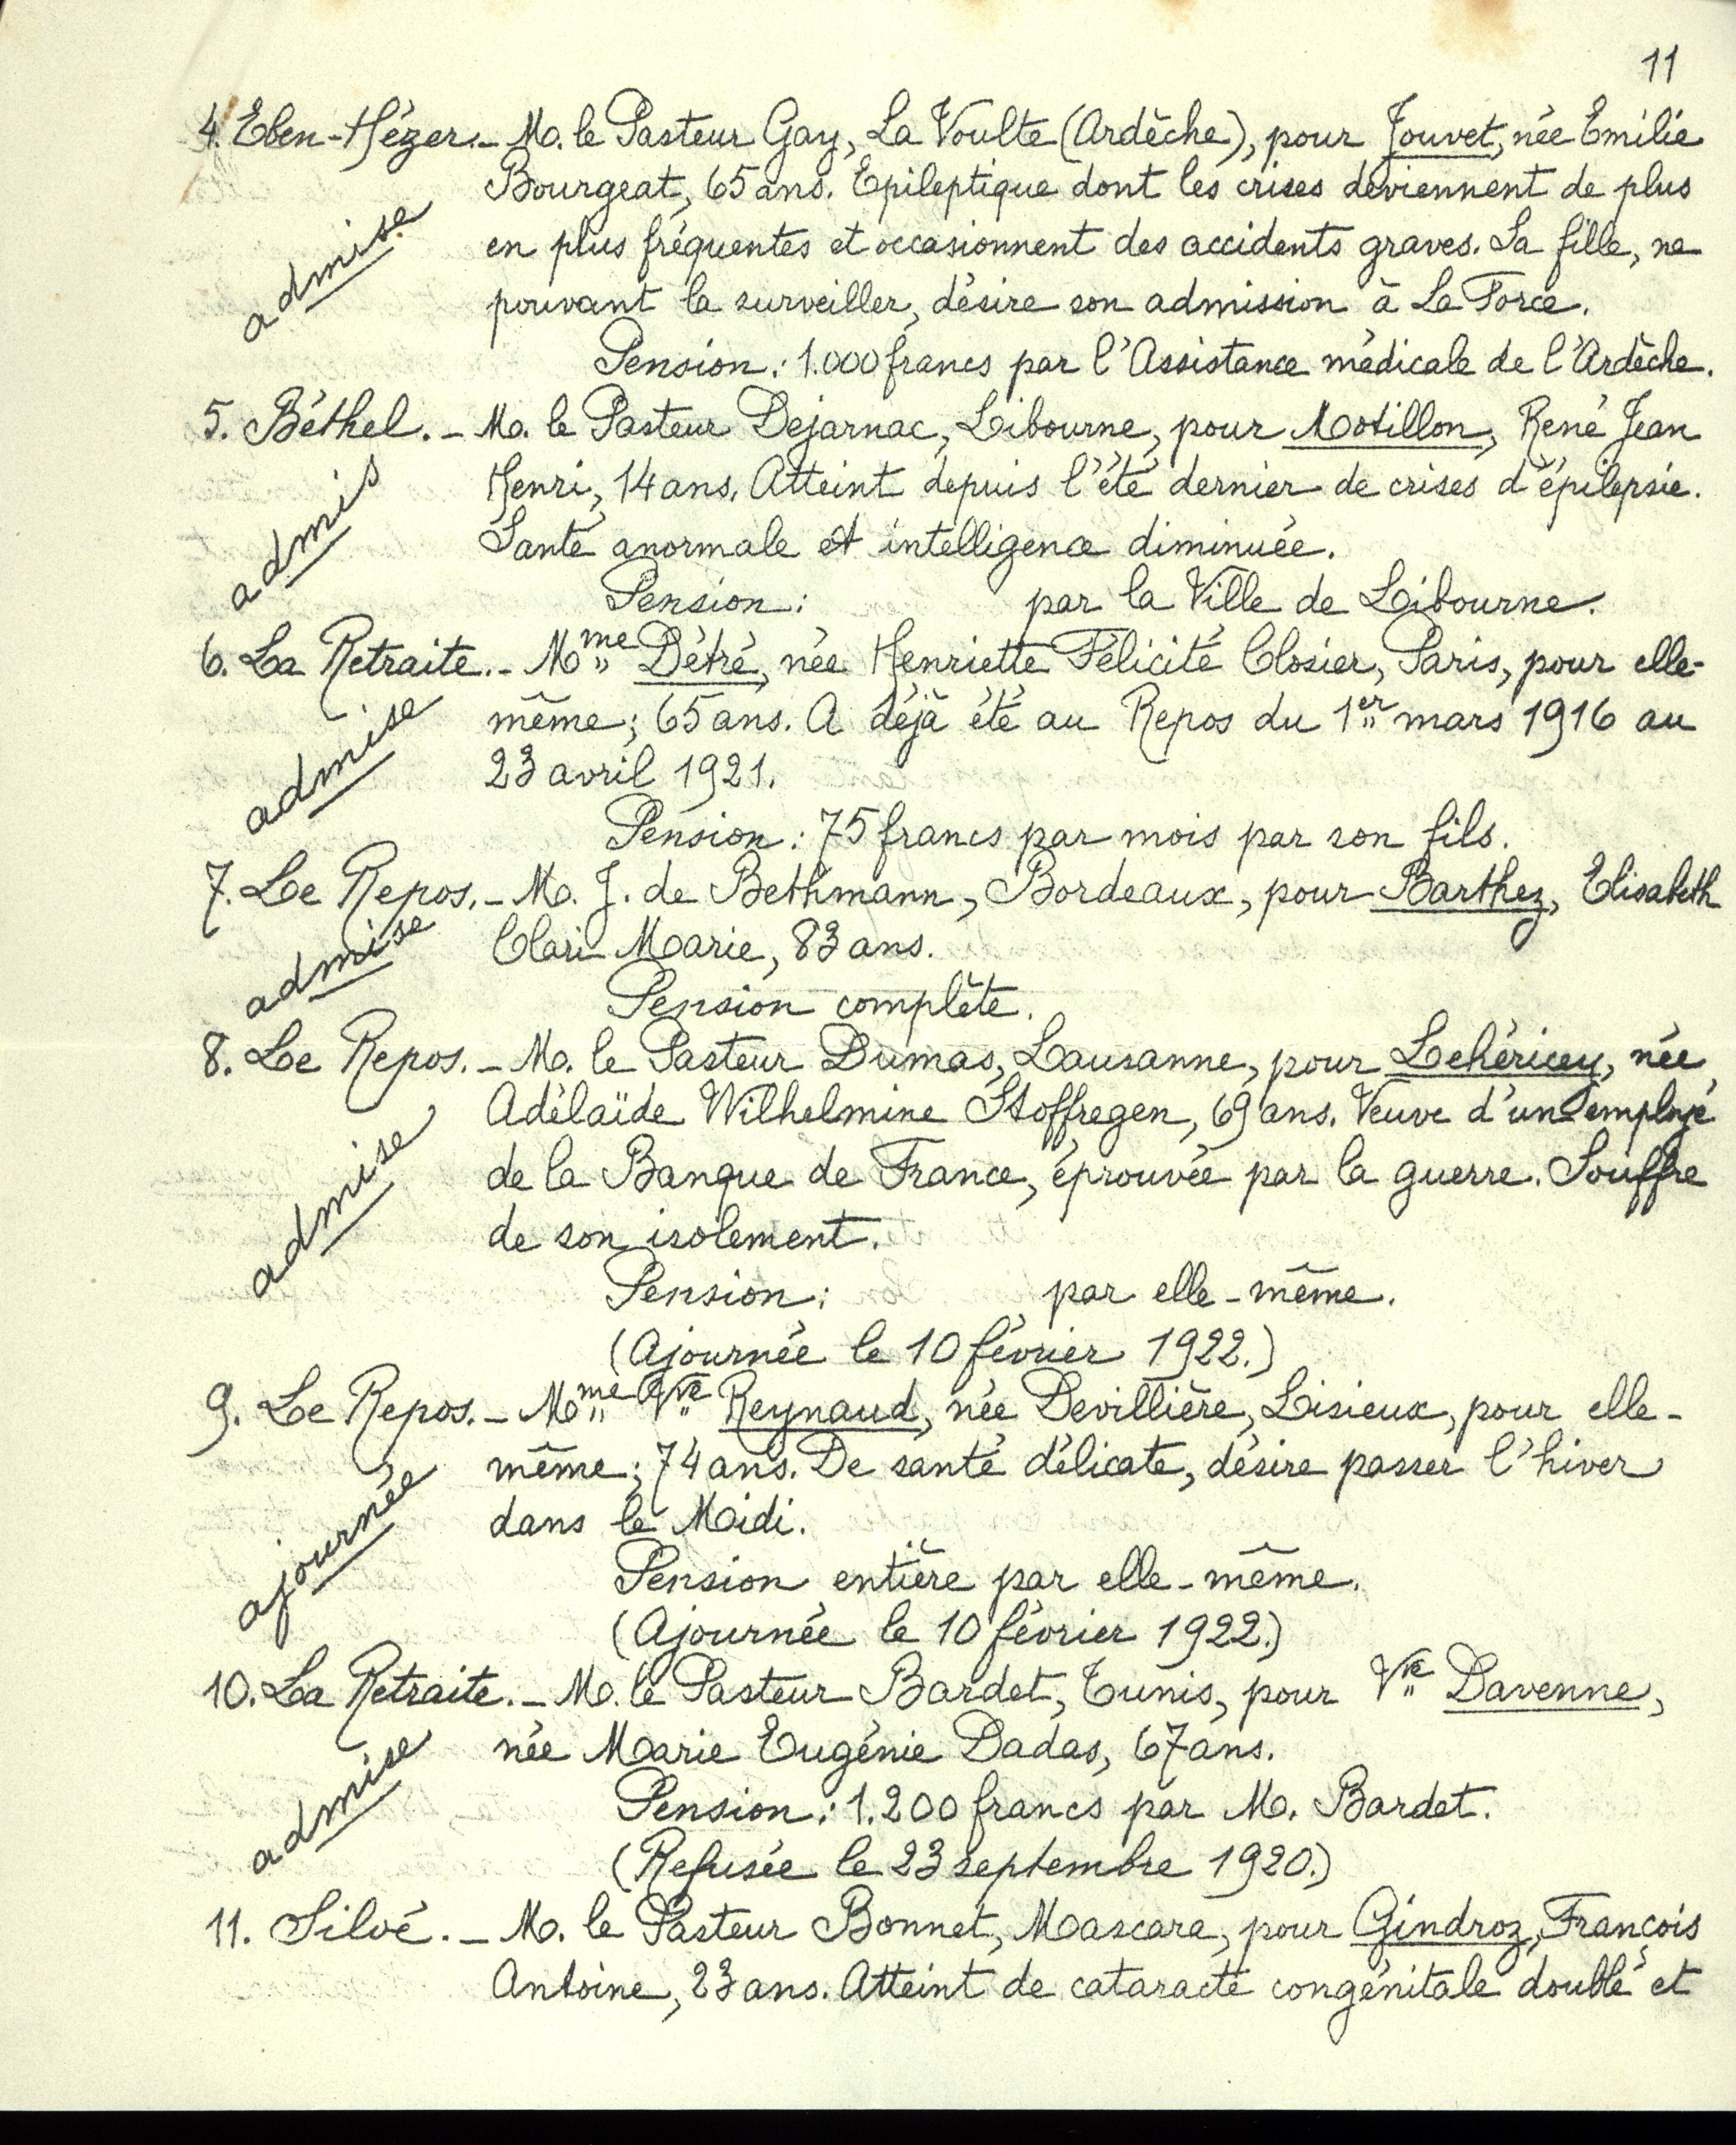 11
4. Eben-Hézer. - M. le Pasteur Gay, La Voulte (Ardèche), pour Jouvet, née Emilie
Bourgeat, 65 ans. Epileptique dont les crises deviennent de plus
en plus fréquentes et occasionnent des accidents graves. Sa fille, ne
pouvant la surveiller, désire son admission à La Force.
admise
Pension : 1.000 francs par l'Assistance médicale de l'Ardèche.
5. Béthel. - M. le Pasteur Dejarnac, Libourne, pour Motillon, René Jean
Henri, 14 ans. Atteint depuis l'été dernier de crises d'épilepsie.
Santé anormale et intelligence diminuée.
admis
Pension : par la Ville de Libourne.
6. La Retraite. - Mme Détré, née Henriette Félicité Closier, Paris, pour elle-
même ; 65 ans. A déjà été au Repos du 1er mars 1916 au
23 avril 1921.
admise
Pension : 75 francs par mois par son fils.
7. Le Repos. - M. J. de Bethmann, Bordeaux, pour Barthez, Elisabeth
Clari Marie, 83 ans.
admise
Pension complète.
8. Le Repos. - M. le Pasteur Dumas, Lausanne, pour Lehéricey, née
Adélaïde Wilhelmine Stoffregen, 69 ans. Veuve d'un employé
de la Banque de France, éprouvée par la guerre. Souffre
de son isolement.
admise
Pension : par elle-même.
(Ajournée le 10 février 1922.)
9. Le Repos. - Mme Vve Reynaud, née Devillière, Lisieux, pour elle-
même ; 74 ans. De santé délicate, désire passer l'hiver
dans le Midi.
ajournée
Pension entière par elle-même.
(Ajournée le 10 février 1922.)
10. La Retraite. - M. le Pasteur Bardet, Tunis, pour Vve Davenne,
née Marie Eugénie Dadas, 67 ans.
admise
Pension : 1.200 francs par M. Bardet.
(Refusée le 23 septembre 1920.)
11. Siloé. - M. le Pasteur Bonnet, Mascara, pour Gindroz, François
Antoine, 23 ans. Atteint de cataracte congénitale double et